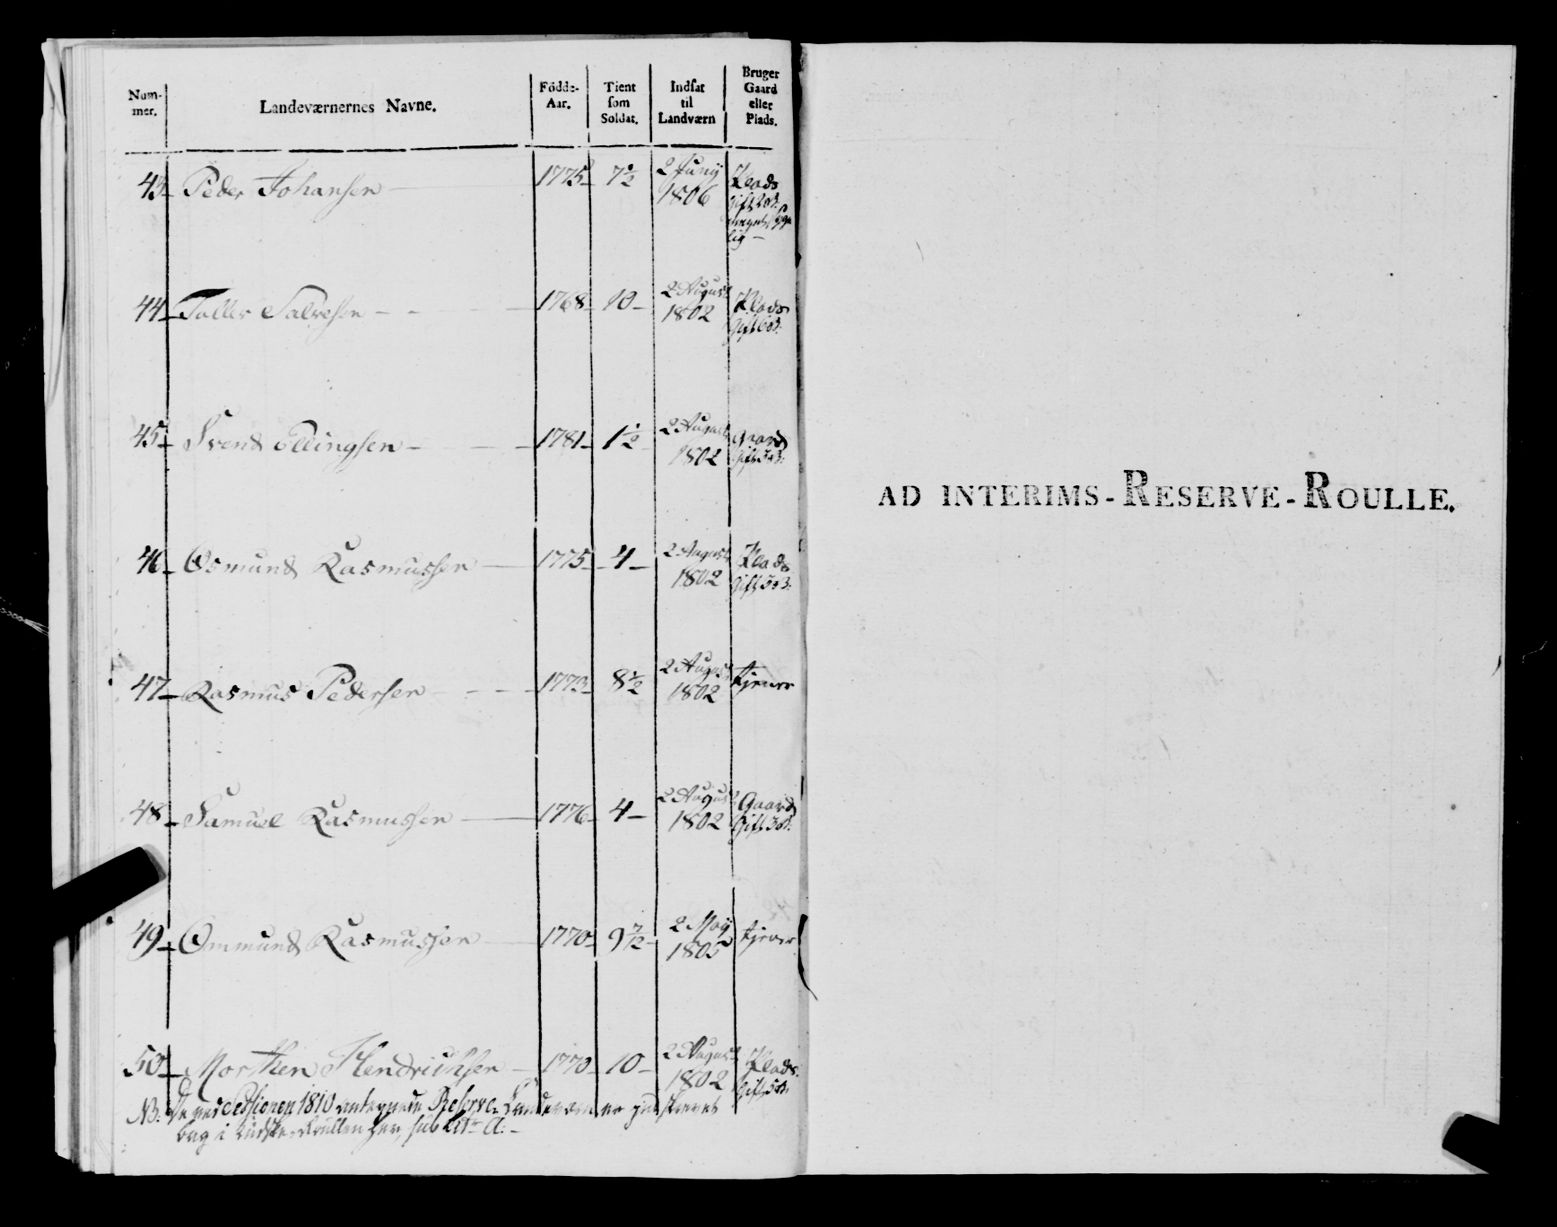 Num-
mer.
Landeværnernes Navne.
Födde-
Aar.
Tient
som
Soldat.
Indsat
til
Landværn
Bruger
Gaard
eller
Plads.
43 Peder Johansen 1775 7½ 2 Juny 1806 Plads
lig
44 Taller Salvesen 1768 10 2 August 1802 Plads
gift
45 Svend Ellingsen 1781 1½ 2 August 1802 Gaard
gift
46 Osmund Rasmussen 1775 4 2 August 1802 Plads
gift
47 Rasmus Pedersen 1773 8½ 2 August 1802 tjener
48 Samuel Rasmussen 1776 4 2 August 1802 Gaard
gift
49 Ommund Rasmussen 1770 9 7/12 2 May 1805 tjener
50 Morthen Hendrichsen 1770 10 2 August 1802 Plads
gift
NB. De ved Sessionen 1810 antegnede Reserve Landeværn
bag i Rullen her, sub Litr A.
AD INTERIMS-RESERVE-ROULLE.